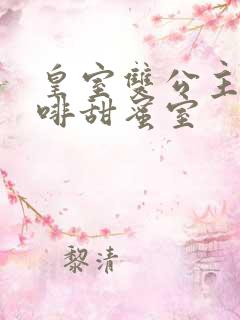 皇室雙公主
啡甜蜜室
黎清